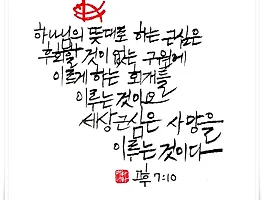 하나님의 뜻대로 하는 근심은
후회할 것이 없는 구원에
이르게 하는 회개를
이루는 것이요
세상근심은 사망을
이루는 것이다
고후 7:10